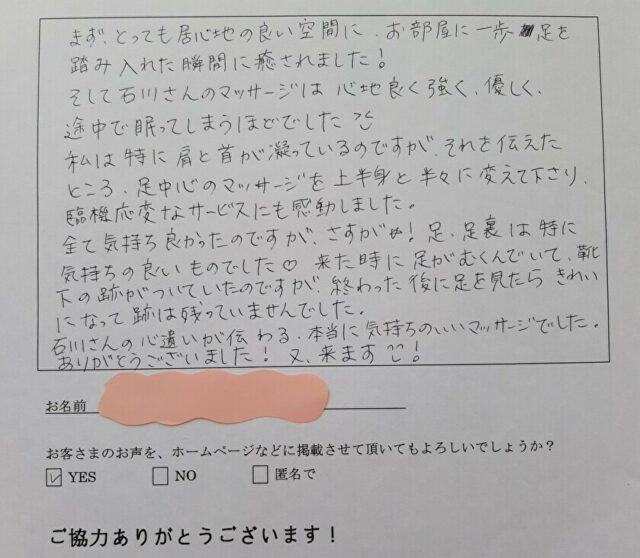 まず、とっても居心地の良い空間に、お部屋に一歩足を
踏み入れた瞬間に癒されました!
そして石川さんのマッサージは 心地良く強く、優しく、
途中で眠ってしまうほどでした
私は特に肩と首が凝っているのですが、それを伝えた
ところ、足中心のマッサージを上半身と半々に変えて下さり、
臨機応変なサービスにも感動しました。
全て気持ち良かったのですが、さすが!足、足裏は特に
気持ちの良いものでした♡ 来た時に足がむくんでいて、靴
下の跡がついていたのですが、終わった後に足を見たら きれい
になって跡は残っていませんでした。
石川さんの心遣いが伝わる、本当に気持ちのいいマッサージでした。
ありがとうございました! 又、来ます !
お名前
お客さまのお声を、ホームページなどに掲載させて頂いてもよろしいでしょうか?
☑ YES □ NO □ 匿名で
ご協力ありがとうございます!